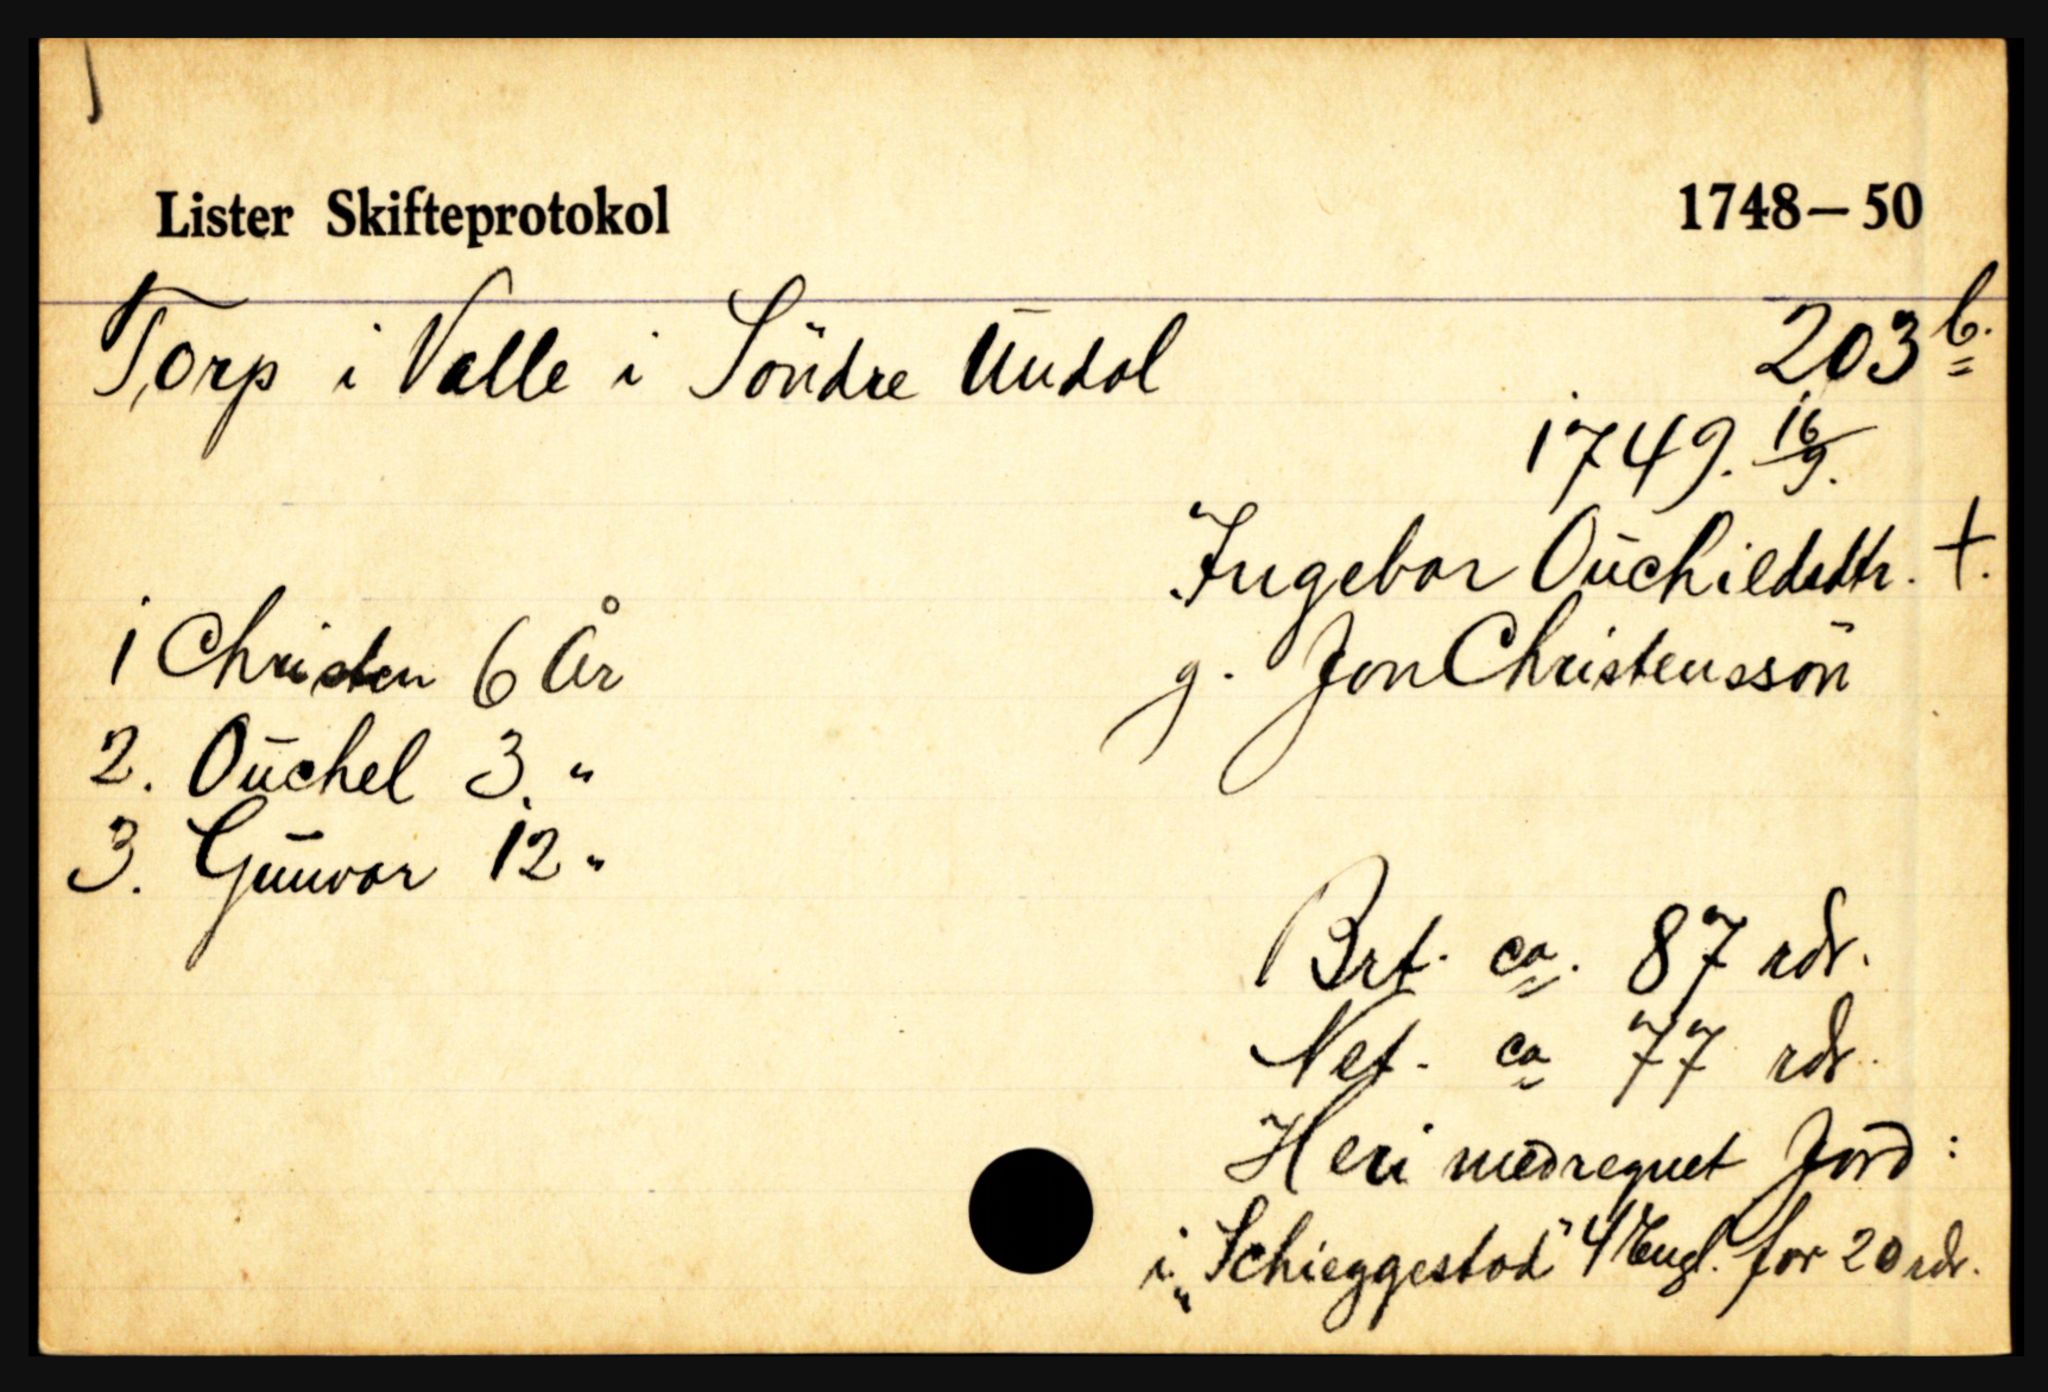 Lister Skifteprotokol 1748—50
Torp i Valle i Söndre Undal 203 b.
1749. 16/9.
Ingebor Ouchildsdtr. +.
g. Jon Christenssön
1 Christen 6 År
2. Ouchel 3 "
3. Gunvor 12 "
Brt. ca. 87 rdr.
Net. ca 77 rdr.
Heri medregnet Jord:
i „Schieggestad" 4 Engl. for 20 rdr.